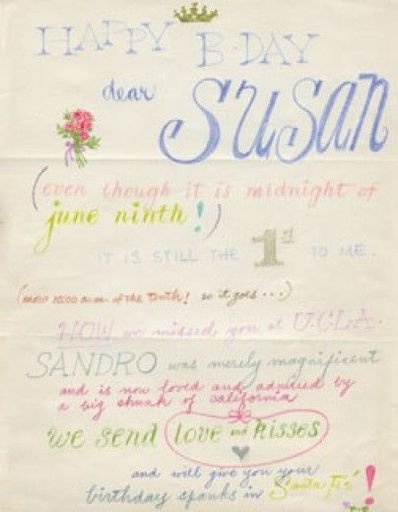 HAPPY B-DAY
dear SUSAN
(even though it is midnight of
june ninth!)
IT IS STILL THE 1st TO ME.
a.m. of the tenth! so it goes...)
HOW we missed you at U.C.L.A.
SANDRO was merely magnificent
and is now loved and admired by
a big chunk of california
we send love and kisses
and will give you your
birthday spanks in Santa Fe!